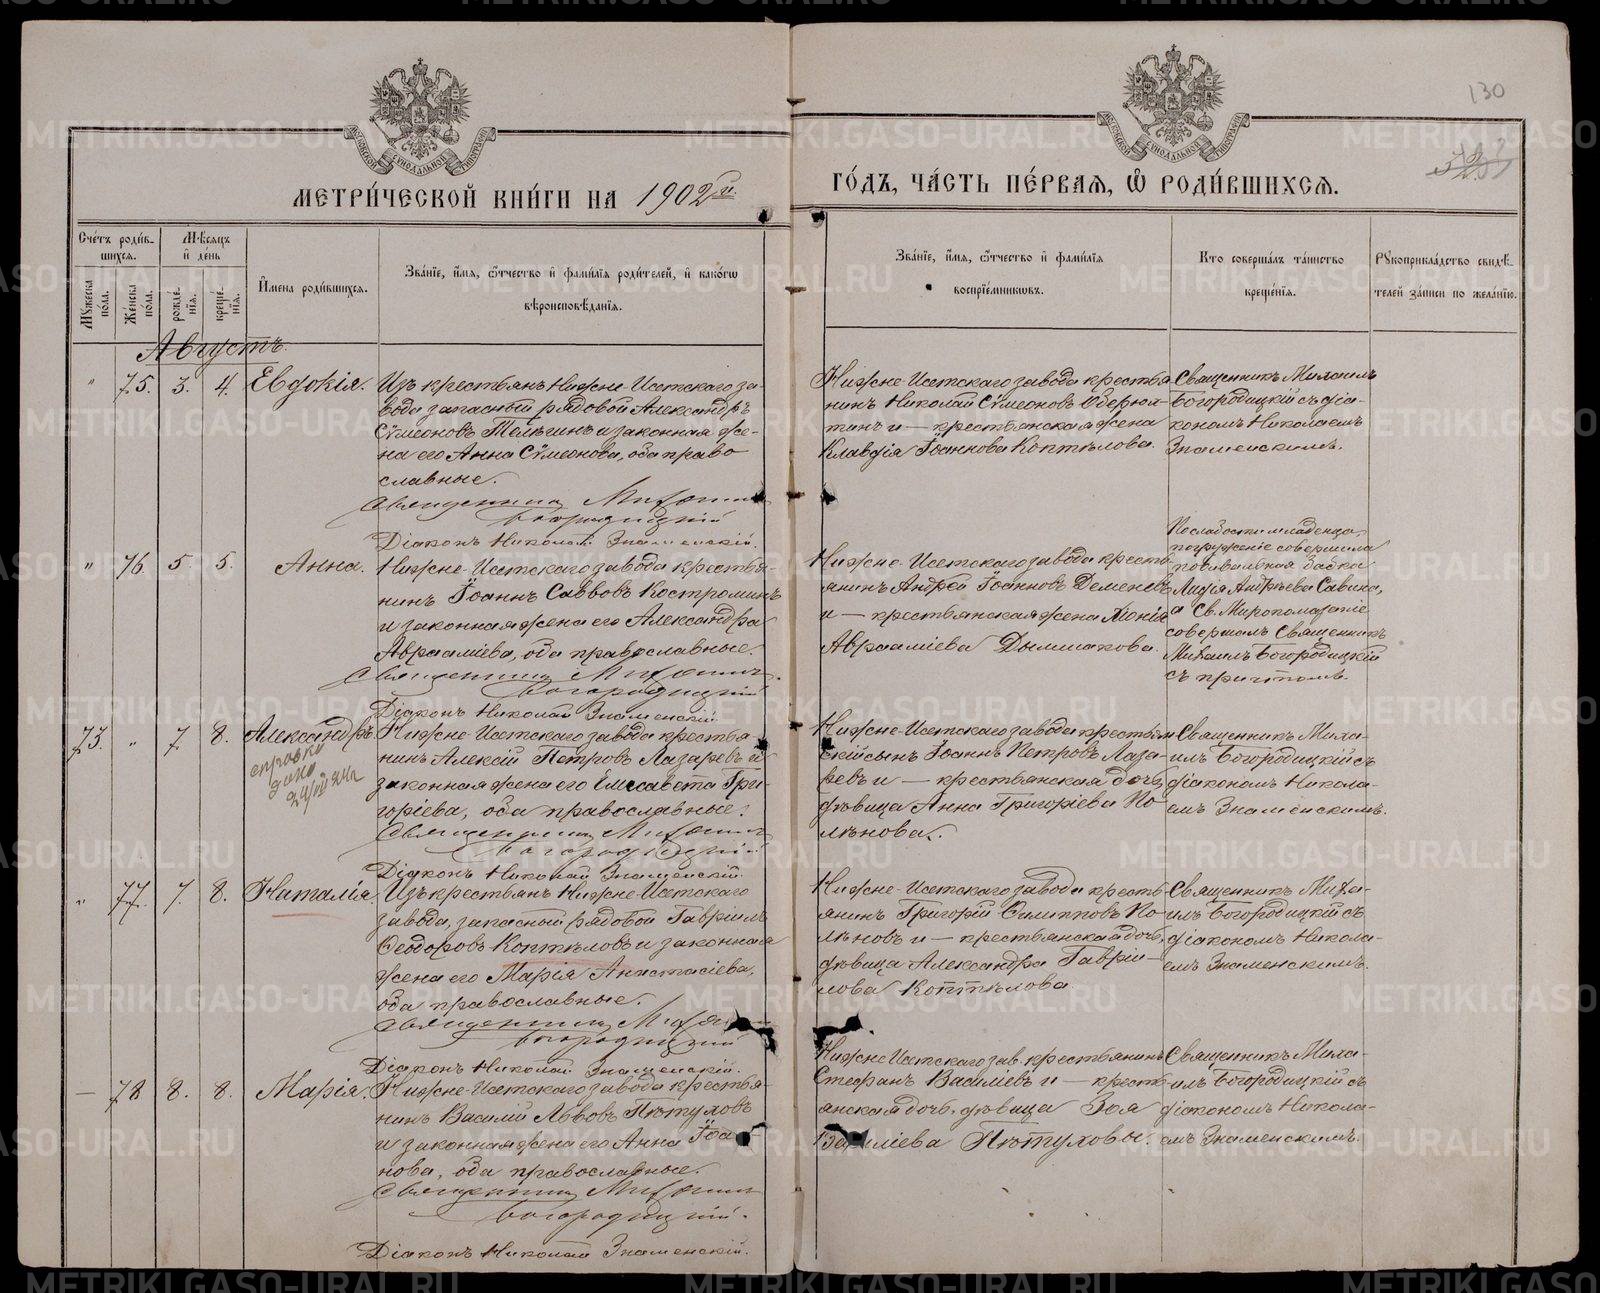 130
МОСКОВСКОЙ СѴНОДАЛЬНОЙ ТИПОГРАФІИ
МОСКОВСКОЙ СѴНОДАЛЬНОЙ ТИПОГРАФІИ
МЕТРИ́ЧЕСКОЙ КНИ́ГИ НА 1902 й.
ГО́ДЪ, ЧА́СТЬ ПЕ́РВАЯ, Ѽ РОДИ́ВШИХСЯ.
Сче́тъ роди́в-
шихся.
Мужеска пола.
Же́нска по́ла.
Мѣ́сяцъ
и҆ де́нь
рожде́-
нїя.
креще́-
нїя.
И҆мена роди́вшихся.
Зва́нїе, и҆́мя, ѻ҆́тчество и҆ фами́лїя роди́телей, и҆ како́гѡ
вѣроисповѣ́данїя.
Зва́нїе, и҆́мя, ѻ҆́тчество и҆ фами́лїя
воспрїе́мникѡвъ.
Кто соверша́лъ та́инство
креще́нїя.
Рꙋкоприкла́дство свидѣ́-
телей за́писи по жела́нїю.
Августъ.
" 75. 3. 4. Евдокія.
Изъ крестьянъ Нижне-Исетскаго за-
вода запасный рядовой Александръ
Сѵмеоновъ Мелгинъ и законная же-
на его Анна Сѵмеонова, оба право
славные.
Священникъ Михаилъ
Богородицкій
Діаконъ Николай Знаменскій.
Нижне-Исетскаго завода крестья
нинъ Николай Сѵмеоновъ Оберюх-
тинъ и — крестьянская жена
Клавдія Іоаннова Коптѣлова.
Священникъ Михаилъ
Богородицкій съ діа-
кономъ Николаемъ
Знаменскимъ.
" 76. 5. 5. Анна.
Нижне-Исетскаго завода крестья-
нинъ Іоаннъ Саввовъ Костроминъ
и законная жена его Александра
Авраамiева, оба православные.
Священникъ Михаилъ
Богородицкій
Діаконъ Николай Знаменскій.
Нижне-Исетскаго завода кресть
янинъ Андрей Іоанновъ Деменевъ
и — крестьянская жена Хіонія
Авраамiева Дымшакова.
По слабости младенца,
погруженіе совершила
повивальная бабка
Лидія Андреева Савина,
а Св. Миропомазаніе
совершалъ Священникъ
Михаилъ Богородицкій
съ причтомъ.
73. " 7. 8. Александръ
справка
дана
Нижне-Исетскаго завода крестья
нинъ Алексій Петровъ Лазаревъ и
законная жена его Елисавета Гри-
горіева, оба православные.
Священникъ Михаилъ
Богородицкій
Діаконъ Николай Знаменскій.
Нижне-Исетскаго завода крестьян
скій сынъ Іоаннъ Петровъ Лаза-
ревъ и — крестьянская дочь,
дѣвица Анна Григоріева По-
лѣнова.
Священникъ Миха-
илъ Богородицкій съ
діакономъ Никола-
емъ Знаменскимъ.
" 77. 7. 8. Наталія.
Изъ крестьянъ Нижне-Исетскаго
завода, запасный рядовой Гавріилъ
Ѳеодоровъ Коптѣловъ и законная
жена его Марія Анастасіева,
оба православные.
Священникъ Михаилъ
Богородицкій
Діаконъ Николай Знаменскій.
Нижне-Исетскаго завода кресть-
янинъ Григорій Филипповъ По-
лѣновъ и — крестьянская дочь,
дѣвица Александра Гаврі-
илова Коптѣлова.
Священникъ Миха-
илъ Богородицкій съ
діакономъ Никола-
емъ Знаменскимъ.
— 78. 8. 8. Марія.
Нижне-Исетскаго завода крестья-
нинъ Василій Львовъ Пѣтуховъ
и законная жена его Анна Іоан-
нова, оба православные.
Священникъ Михаилъ
Богородицкій.
Діаконъ Николай Знаменскій.
Нижне-Исетскаго зав. крестьянинъ
Стефанъ Василіевъ и — кресть-
янская дочь, дѣвица Зоя
Василіева Пѣтуховы.
Священникъ Миха-
илъ Богородицкій съ
діакономъ Никола-
емъ Знаменскимъ.
METRIKI.GASO-URAL.RU